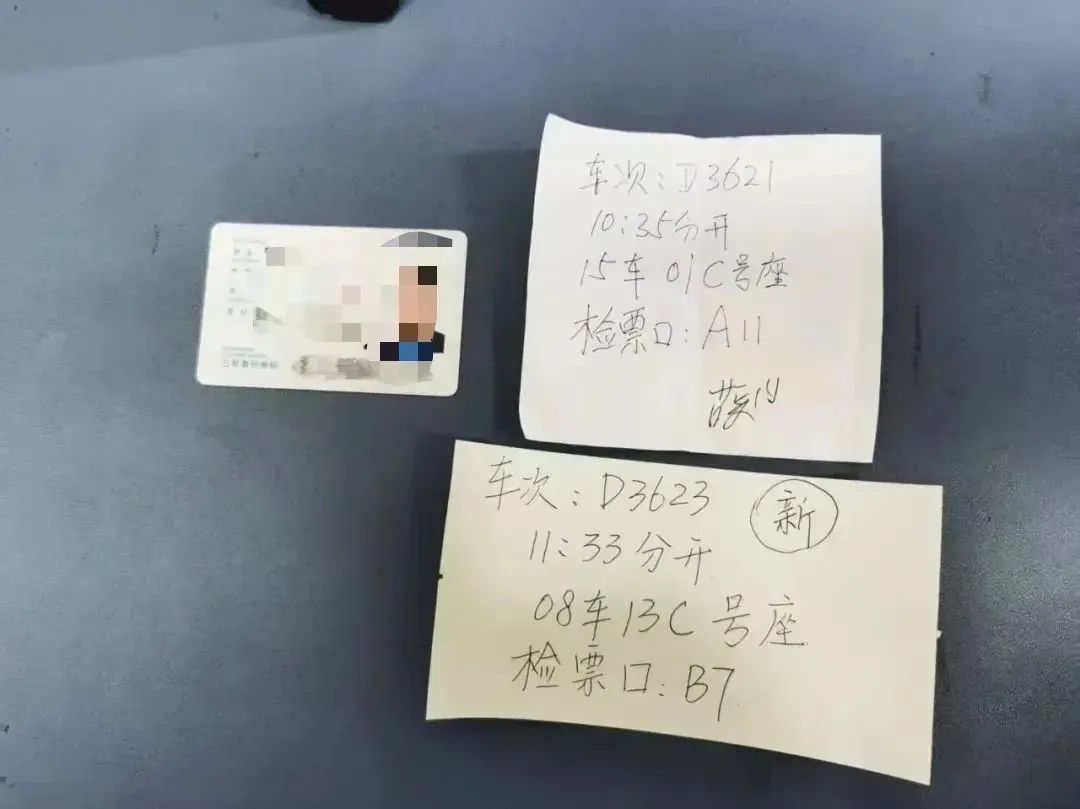 公民身份号码
车次:D3621
10:35分开
15车 01C号座
检票口:A11
车次:D3623
新
11:33分开
08车13C号座
检票口:B7